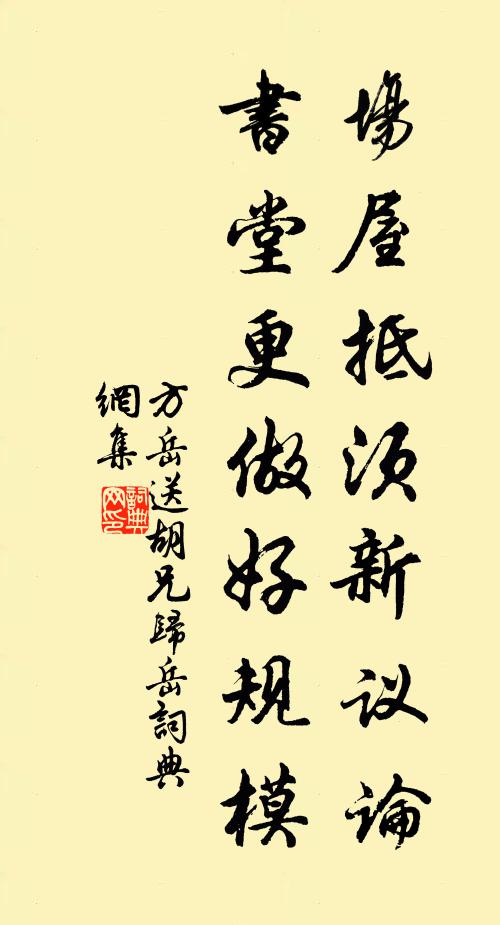 場屋抵須新议論
書堂更做好规模
方岳送胡兄歸岳詞典
網集
詞典网印